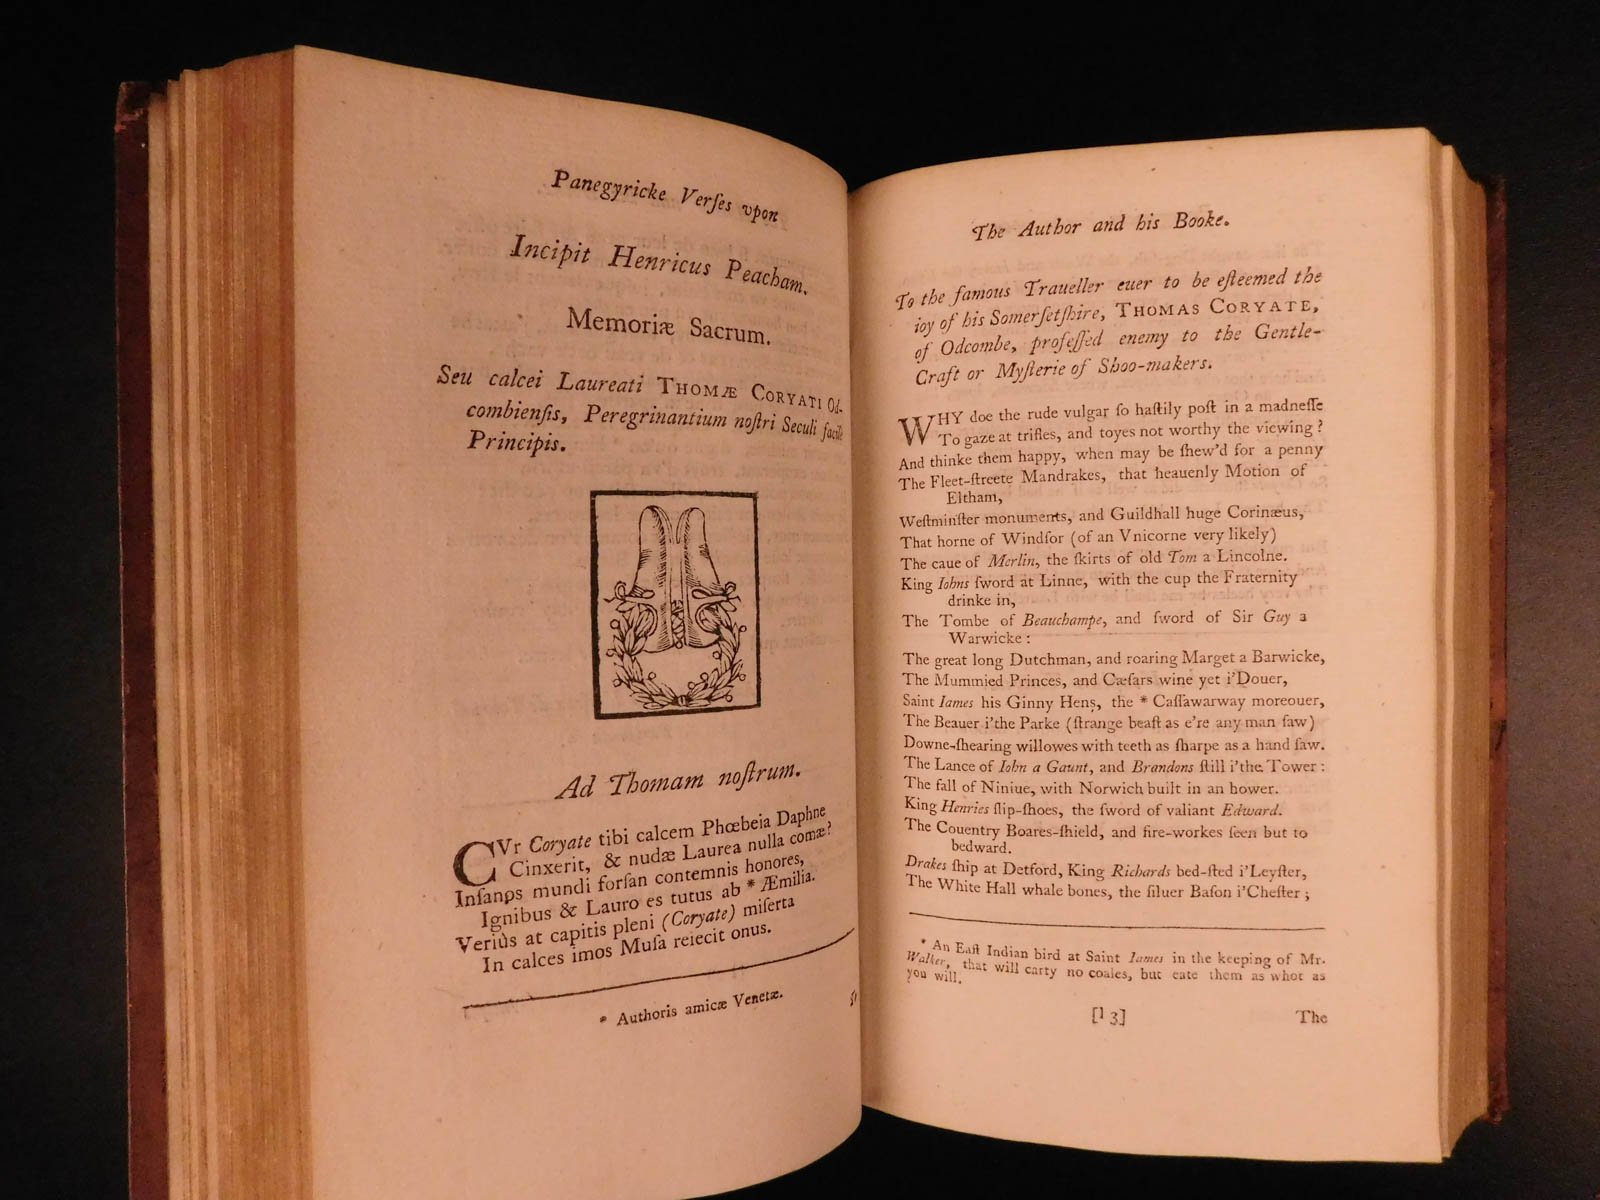 Panegyricke Verſes vpon
Incipit Henricus Peacham.
Memoriæ Sacrum.
Seu calcei Laureati THOMÆ CORYATI Od-
combienſis, Peregrinantium noſtri Seculi facilè
Principis.
Ad Thomam noſtrum.
CVr Coryate tibi calcem Phœbeia Daphne
Cinxerit, & nudæ Laurea nulla comæ?
Inſanos mundi forſan contemnis honores,
Ignibus & Lauro es tutus ab * Æmilia.
Veriùs at capitis pleni (Coryate) miſerta
In calces imos Muſa reiecit onus.
* Authoris amicæ Venetæ.
The Author and his Booke.
To the famous Traueller euer to be eſteemed the
ioy of his Somerſetſhire, THOMAS CORYATE,
of Odcombe, profeſſed enemy to the Gentle-
Craft or Myſterie of Shoo-makers.
WHY doe the rude vulgar ſo haſtily poſt in a madneſſe
To gaze at trifles, and toyes not worthy the viewing?
And thinke them happy, when may be ſhew'd for a penny
The Fleet-ſtreete Mandrakes, that heauenly Motion of
Eltham,
Weſtminſter monuments, and Guildhall huge Corinæus,
That horne of Windſor (of an Vnicorne very likely)
The caue of Merlin, the ſkirts of old Tom a Lincolne.
King Iohns ſword at Linne, with the cup the Fraternity
drinke in,
The Tombe of Beauchampe, and ſword of Sir Guy a
Warwicke:
The great long Dutchman, and roaring Marget a Barwicke,
The Mummied Princes, and Cæſars wine yet i'Douer,
Saint Iames his Ginny Hens, the * Caſſawarway moreouer,
The Beauer i'the Parke (ſtrange beaſt as e're any man ſaw)
Downe-ſhearing willowes with teeth as ſharpe as a hand ſaw.
The Lance of Iohn a Gaunt, and Brandons ſtill i'the Tower:
The fall of Niniue, with Norwich built in an hower.
King Henries ſlip-ſhoes, the ſword of valiant Edward.
The Couentry Boares-ſhield, and fire-workes ſeen but to
bedward.
Drakes ſhip at Detford, King Richards bed-ſted i'Leyſter,
The White Hall whale bones, the ſiluer Baſon i'Cheſter;
* An Eaſt Indian bird at Saint Iames in the keeping of Mr.
Walker, that will carty no coales, but eate them as whot as
you will.
[l 3]
The